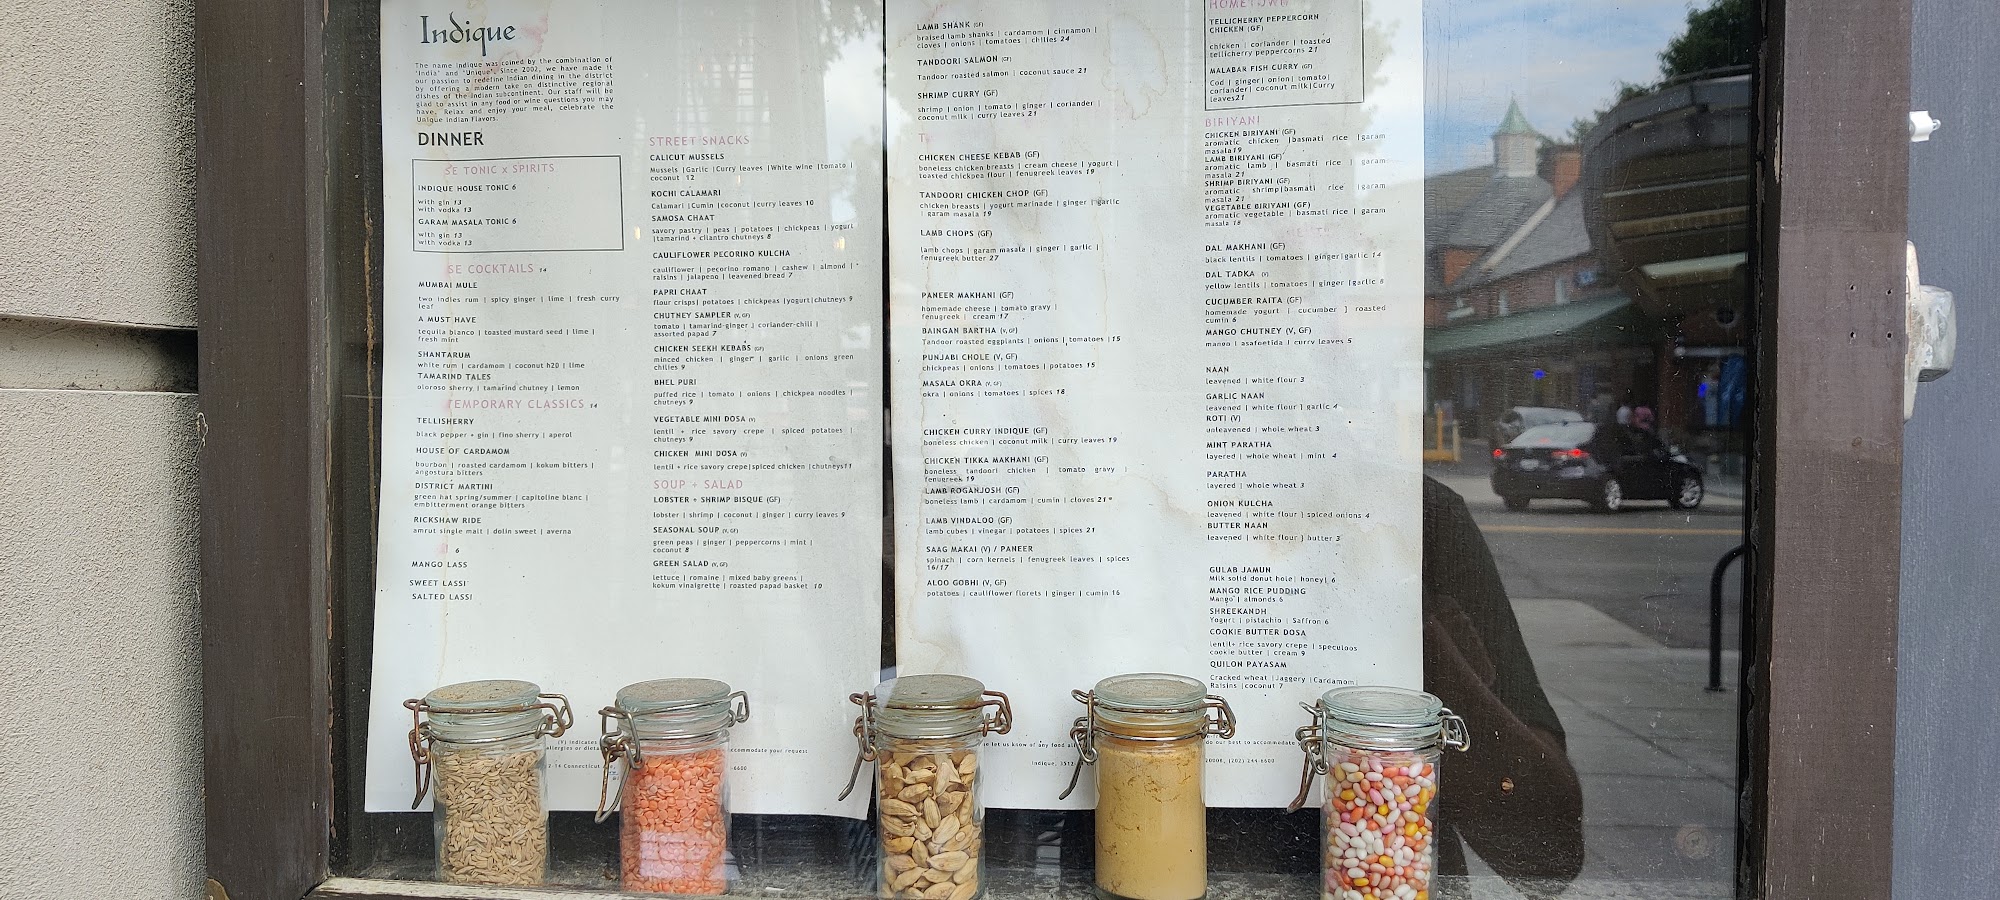 Indique
The name indique was coined by the combination of
"India" and "Unique". Since 2002, we have made it
our passion to redefine Indian dining in the district
by offering a modern take on distinctive regional
dishes of the Indian subcontinent. Our staff will be
glad to assist in any food or wine questions you may
have. Relax and enjoy your meal, celebrate the
Unique Indian Flavors.
DINNER
SE TONIC x SPIRITS
INDIQUE HOUSE TONIC 6
with gin 13
with vodka 13
GARAM MASALA TONIC 6
with gin 13
with vodka 13
SE COCKTAILS 14
MUMBAI MULE
two indies rum | spicy ginger | lime | fresh curry
leaf
A MUST HAVE
tequila blanco | toasted mustard seed | lime |
fresh mint
SHANTARUM
white rum | cardamom | coconut h20 | lime
TAMARIND TALES
oloroso sherry | tamarind chutney | lemon
TEMPORARY CLASSICS 14
TELLISHERRY
black pepper + gin | fino sherry | aperol
HOUSE OF CARDAMOM
bourbon | roasted cardamom | kokum bitters |
angostura bitters
DISTRICT MARTINI
green hat spring/summer | capitoline blanc |
embitterment orange bitters
RICKSHAW RIDE
amrut single malt | dolin sweet | averna
6
MANGO LASS
SWEET LASSI
SALTED LASSI
STREET SNACKS
CALICUT MUSSELS
Mussels |Garlic |Curry leaves |White wine |tomato |
coconut 12
KOCHI CALAMARI
Calamari |Cumin |coconut |curry leaves 10
SAMOSA CHAAT
savory pastry | peas | potatoes | chickpeas | yogurt
|tamarind + cilantro chutneys 8
CAULIFLOWER PECORINO KULCHA
cauliflower | pecorino romano | cashew | almond |
raisins | jalapeno | leavened bread 7
PAPRI CHAAT
flour crisps| potatoes | chickpeas |yogurt|chutneys 9
CHUTNEY SAMPLER (V, GF)
tomato | tamarind-ginger | coriander-chili |
assorted papad 7
CHICKEN SEEKH KEBABS (GF)
minced chicken | ginger | garlic | onions green
chilies 9
BHEL PURI
puffed rice | tomato | onions | chickpea noodles |
chutneys 9
VEGETABLE MINI DOSA (V)
lentil + rice savory crepe | spiced potatoes |
chutneys 9
CHICKEN MINI DOSA (V)
lentil + rice savory crepe|spiced chicken |chutneys11
SOUP + SALAD
LOBSTER + SHRIMP BISQUE (GF)
lobster | shrimp | coconut | ginger | curry leaves 9
SEASONAL SOUP (V, GF)
green peas | ginger | peppercorns | mint |
coconut 8
GREEN SALAD (V, GF)
lettuce | romaine | mixed baby greens |
kokum vinaigrette | roasted papad basket 10
(V) indicates
allergies or dieta
ccommodate your request
2-14 Connecticut
-6600
LAMB SHANK (GF)
braised lamb shanks | cardamom | cinnamon |
cloves | onions | tomatoes | chilies 24
TANDOORI SALMON (GF)
Tandoor roasted salmon | coconut sauce 21
SHRIMP CURRY (GF)
shrimp | onion | tomato | ginger | coriander |
coconut milk | curry leaves 21
T
CHICKEN CHEESE KEBAB (GF)
boneless chicken breasts | cream cheese | yogurt |
toasted chickpea flour | fenugreek leaves 19
TANDOORI CHICKEN CHOP (GF)
chicken breasts | yogurt marinade | ginger |garlic
| garam masala 19
LAMB CHOPS (GF)
lamb chops | garam masala | ginger | garlic |
fenugreek butter 27
PANEER MAKHANI (GF)
homemade cheese | tomato gravy |
fenugreek | cream 17
BAINGAN BARTHA (V, GF)
Tandoor roasted eggplants | onions | tomatoes |15
PUNJABI CHOLE (V, GF)
chickpeas | onions | tomatoes | potatoes 15
MASALA OKRA (V, GF)
okra | onions | tomatoes | spices 18
CHICKEN CURRY INDIQUE (GF)
boneless chicken | coconut milk | curry leaves 19
CHICKEN TIKKA MAKHANI (GF)
boneless tandoori chicken | tomato gravy |
fenugreek 19
LAMB ROGANJOSH (GF)
boneless lamb | cardamom | cumin | cloves 21
LAMB VINDALOO (GF)
lamb cubes | vinegar | potatoes | spices 21
SAAG MAKAI (V) / PANEER
spinach | corn kernels | fenugreek leaves | spices
16/17
ALOO GOBHI (V, GF)
potatoes | cauliflower florets | ginger | cumin 16
se let us know of any food all
Indique, 3512
HOMETOWN
TELLICHERRY PEPPERCORN
CHICKEN (GF)
chicken | coriander | toasted
tellicherry peppercorns 21
MALABAR FISH CURRY (GF)
Cod | ginger| onion| tomato|
coriander| coconut milk|Curry
leaves21
BIRIYANI
CHICKEN BIRIYANI (GF)
aromatic chicken |basmati rice |garam
masala19
LAMB BIRIYANI (GF)
aromatic lamb | basmati rice | garam
masala 21
SHRIMP BIRIYANI (GF)
aromatic shrimp|basmati rice |garam
masala 21
VEGETABLE BIRIYANI (GF)
aromatic vegetable | basmati rice | garam
masala 18
DAL MAKHANI (GF)
black lentils | tomatoes | ginger|garlic 14
DAL TADKA (V)
yellow lentils | tomatoes | ginger |garlic 8
CUCUMBER RAITA (GF)
homemade yogurt | cucumber | roasted
cumin 6
MANGO CHUTNEY (V, GF)
mango | asafoetida | curry leaves 5
NAAN
leavened | white flour 3
GARLIC NAAN
leavened | white flour | garlic 4
ROTI (V)
unleavened | whole wheat 3
MINT PARATHA
layered | whole wheat | mint 4
PARATHA
layered | whole wheat 3
ONION KULCHA
leavened | white flour | spiced onions 4
BUTTER NAAN
leavened | white flour | butter 3
GULAB JAMUN
Milk solid donut hole| honey| 6
MANGO RICE PUDDING
Mango | almonds 6
SHREEKANDH
Yogurt | pistachio | Saffron 6
COOKIE BUTTER DOSA
lentil+ rice savory crepe | speculoos
cookie butter | cream 9
QUILON PAYASAM
Cracked wheat |Jaggery |Cardamom|
Raisins |coconut 7
do our best to accommodate
20008, (202) 244-6600